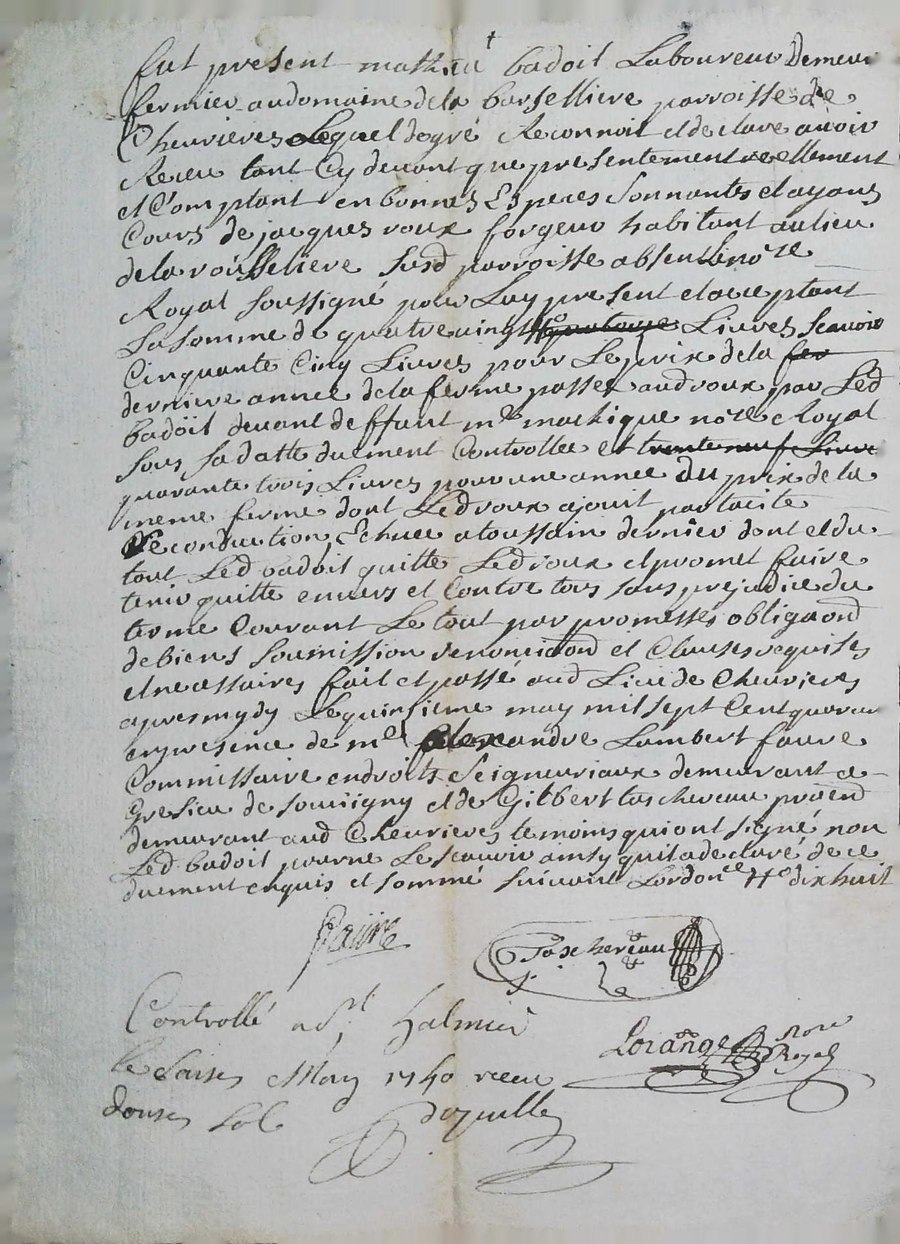 fut present mathieu badoil Laboureur Demeur
fermier audomaine dela barselliere parroisse de
Cheurieres Lequel degré Reconnoit et declare auoir
Receu tant Cy deuant que presentement reellement
et Comptant en bonnes Especes Sonnantes et ayans
Cours de jacques roux forgeur habitant au lieu
de la rousseliere susd parroisse absent Le nore
Royal soussigné pour Luy present et acceptant
La somme de quatre vingt Liures Scauoir
Cinquante Cinq Liures pour Le prix de la
derniere année de la ferme passée aud roux par Led
badoit deuant deffunt me nore Royal
sous sa datte duement Controllée et trente neuf Liure
quarante trois Liures pour une année du prix de la
meme ferme dont Led roux a jouit par tacite
Reconduction Echuee a toussain dernier dont et du
tout Led badoit quitte Led roux et promet faire
tenir quitte enuers et Contre tous sans prejudice du
terme Courant Le tout par promesses obligaond
de biens soumission renonciaond et Clauses requises
et necessaires fait et passé aud Lieu de Cheurieres
apres mydy Le quinsieme may mil sept Cent quaran
en presence de me alexandre Lambert faure
Commissaire en droits Seigneuriaux demeurant a
Gresieu de souuigny et de Gilbert tachereau
demeurant aud Cheurieres temoins qui ont signé non
Led badoit pour ne Le scauoir ainsy quil a declaré de ce
duement enquis et sommé suiuant Lordonce dix huit
Faure
Taschereau
Controllé a St Galmier
Lorange nore Royal
le saise May 1740 receu
douse sols